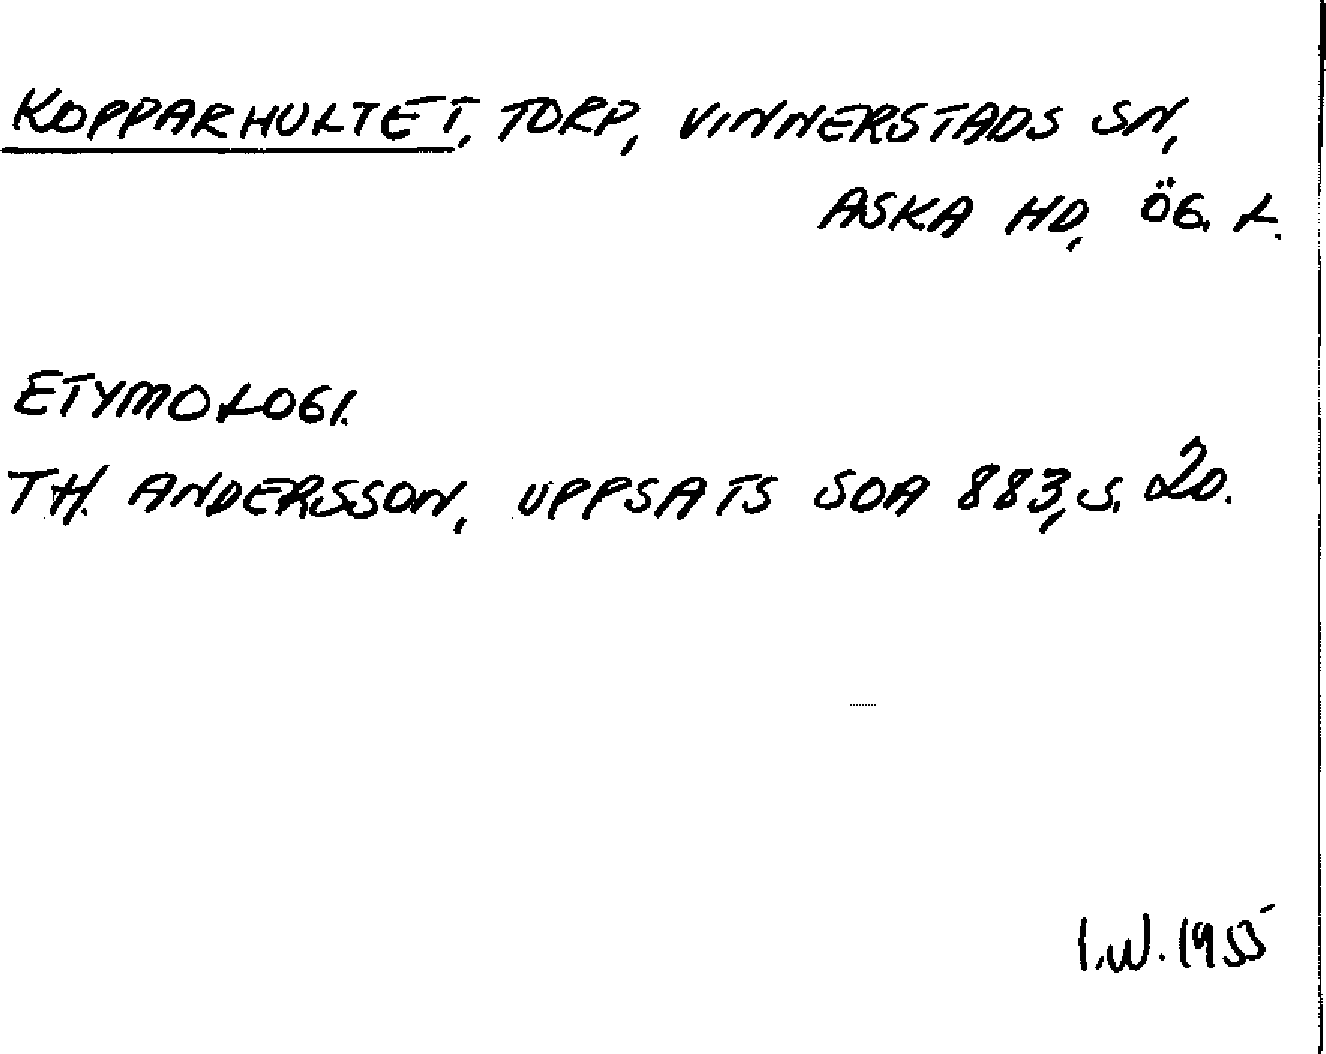 KOPPARHULTET, TORP, VINNERSTADS SN,
ASKA HD, ÖG. L.
ETYMOLOGI.
TH. ANDERSSON, UPPSATS SOA 883, S. 20.
I.W. 1955